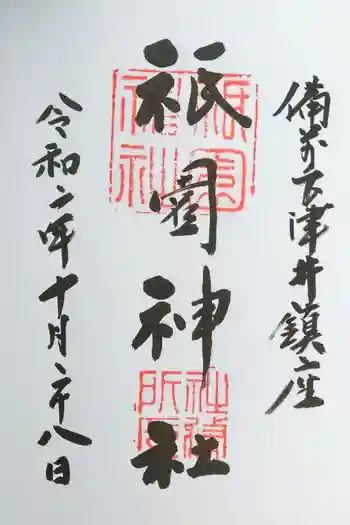 備前下津井鎮座
祇園神社
令和二年十月二十八日
祇園神社
社務所印